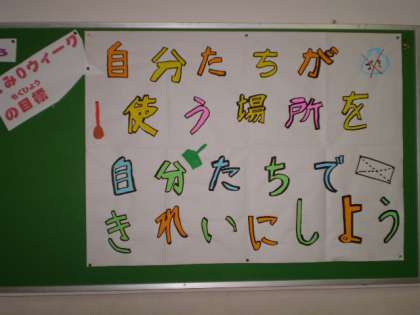 み0ウィーク
もくひょう
の目標
自分たちが
使う場所を
自分たちで
きれいにしよう